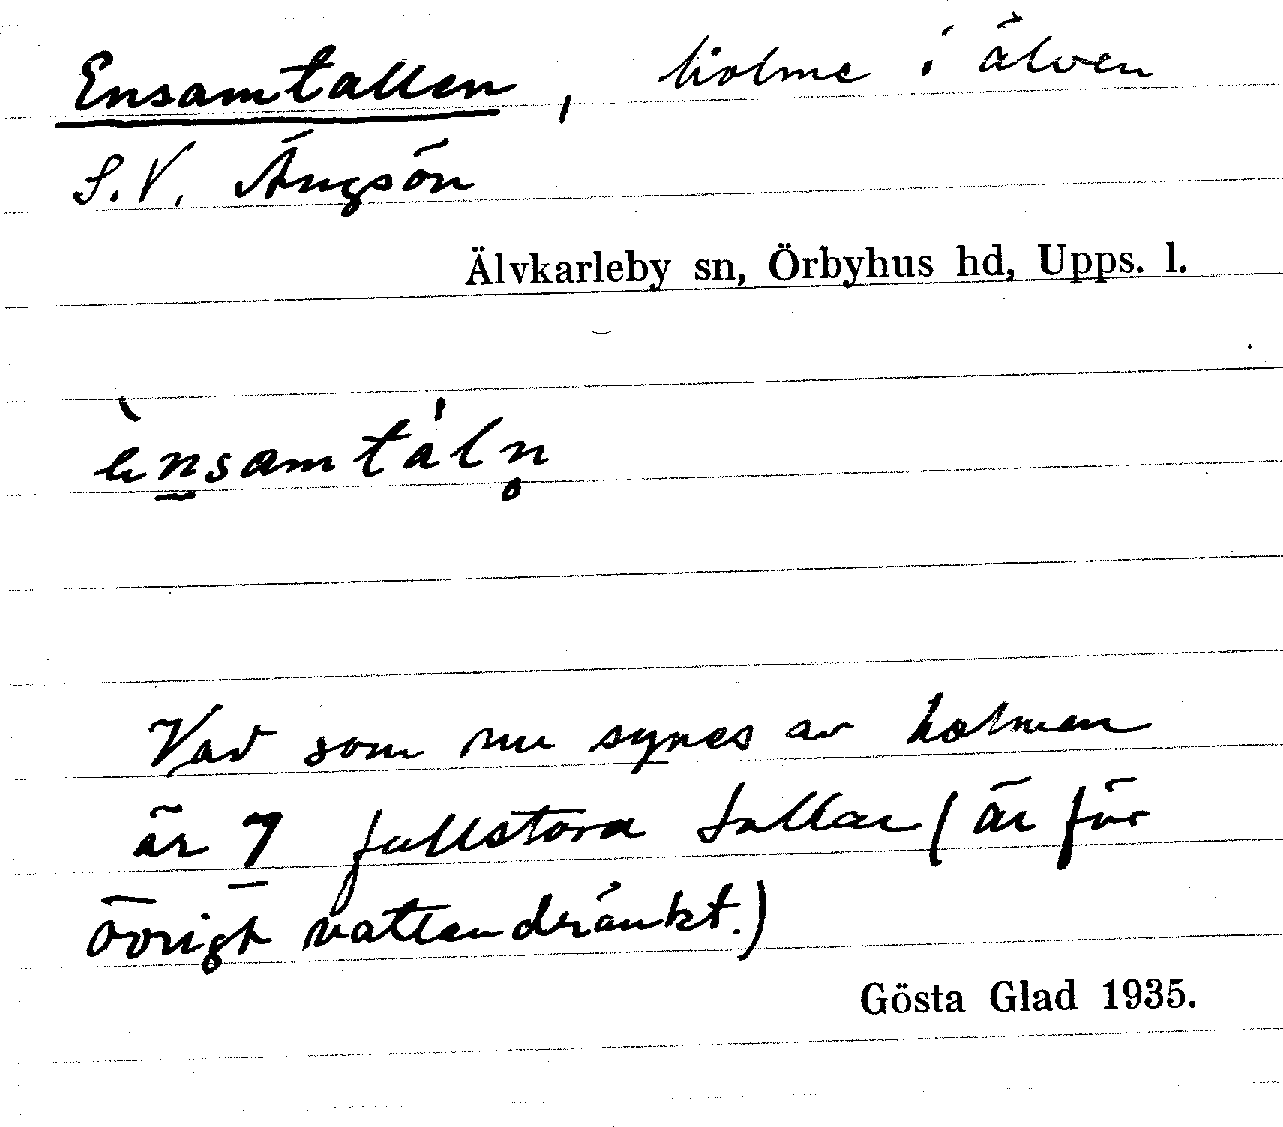 Ensamtallen, holme i älven
S.V. Ängsön
Älvkarleby sn, Örbyhus hd, Upps. l.
è̀nsamtáln̥
Vad som nu synes av holmen
är 7 fullstora tallar (är för
övrigt vattendränkt.)
Gösta Glad 1935.